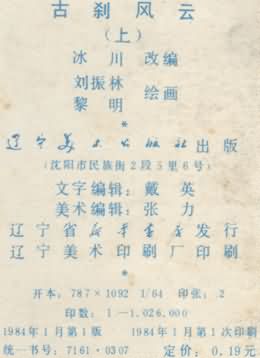 古刹风云
(上)
冰川 改编
刘振林
黎明 绘画
*
辽宁美术出版社出版
(沈阳市民族街2段5里6号)
文字编辑:戴英
美术编辑:张力
辽宁省新华书店发行
辽宁美术印刷厂印刷
*
开本:787×1092 1/64 印张:2
印数:1—1,026,000
1984年1月第1版 1984年1月第1次印刷
统一书号:7161·0307 定价:0.19元